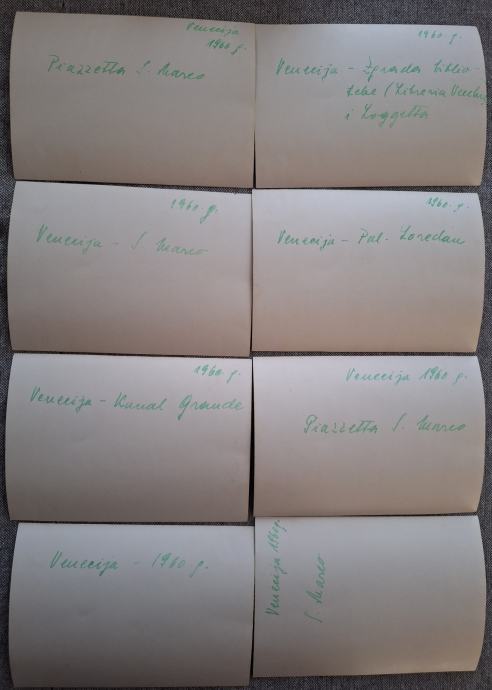 Venecija
1960 g.
Piazzetta S. Marco
1960. g.
Venecija - Zgrada biblio-
teke (Libreria Vecchia)
i Loggetta
1960. g.
Venecija - S. Marco
1960. g.
Venecija - Pal. Loredan
1960. g.
Venecija - Kanal Grande
Venecija 1960 g.
Piazzetta S. Marco
Venecija - 1960 g.
Venecija 1960 g.
S. Marco